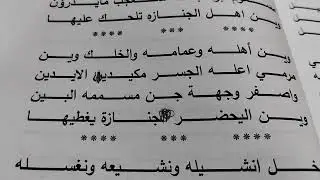 وين اهل الجنـازه تلحـك عليهـا
**** **** ****
ويـن أهلـه وعمامـه والخلـك ويـن
مرمي اعله الجسر مكيديـن الايديـن
واصفـر وجهـة جـن مسـممه البيـن
ويـن اليحضـر الجنـازة يغطيهـا
**** **** ****
خـل انشيله ونشيعه ونغسله